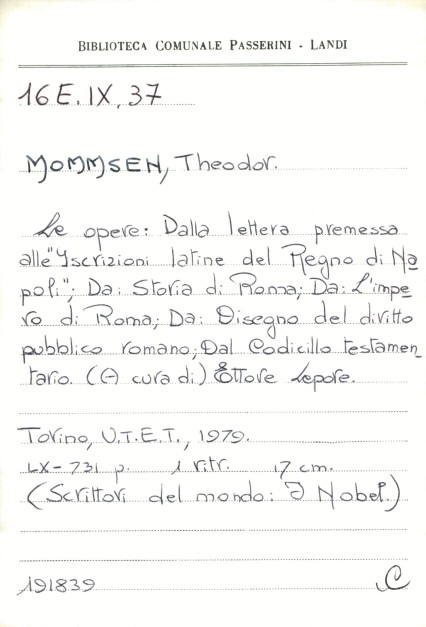 BIBLIOTECA COMUNALE PASSERINI - LANDI
16 E. IX, 37
MOMMSEN, Theodor.
Le opere: Dalla lettera premessa
alle "Iscrizioni latine del Regno di Na
poli"; Da: Storia di Roma; Da: L'impe
ro di Roma; Da: Disegno del diritto
pubblico romano; Dal Codicillo testamen
tario. (A cura di) Ettore Lepore.
Torino, U.T.E.T., 1979.
LX-731 p. 1 ritr. 17 cm.
(Scrittori del mondo: I Nobel.)
191839 C